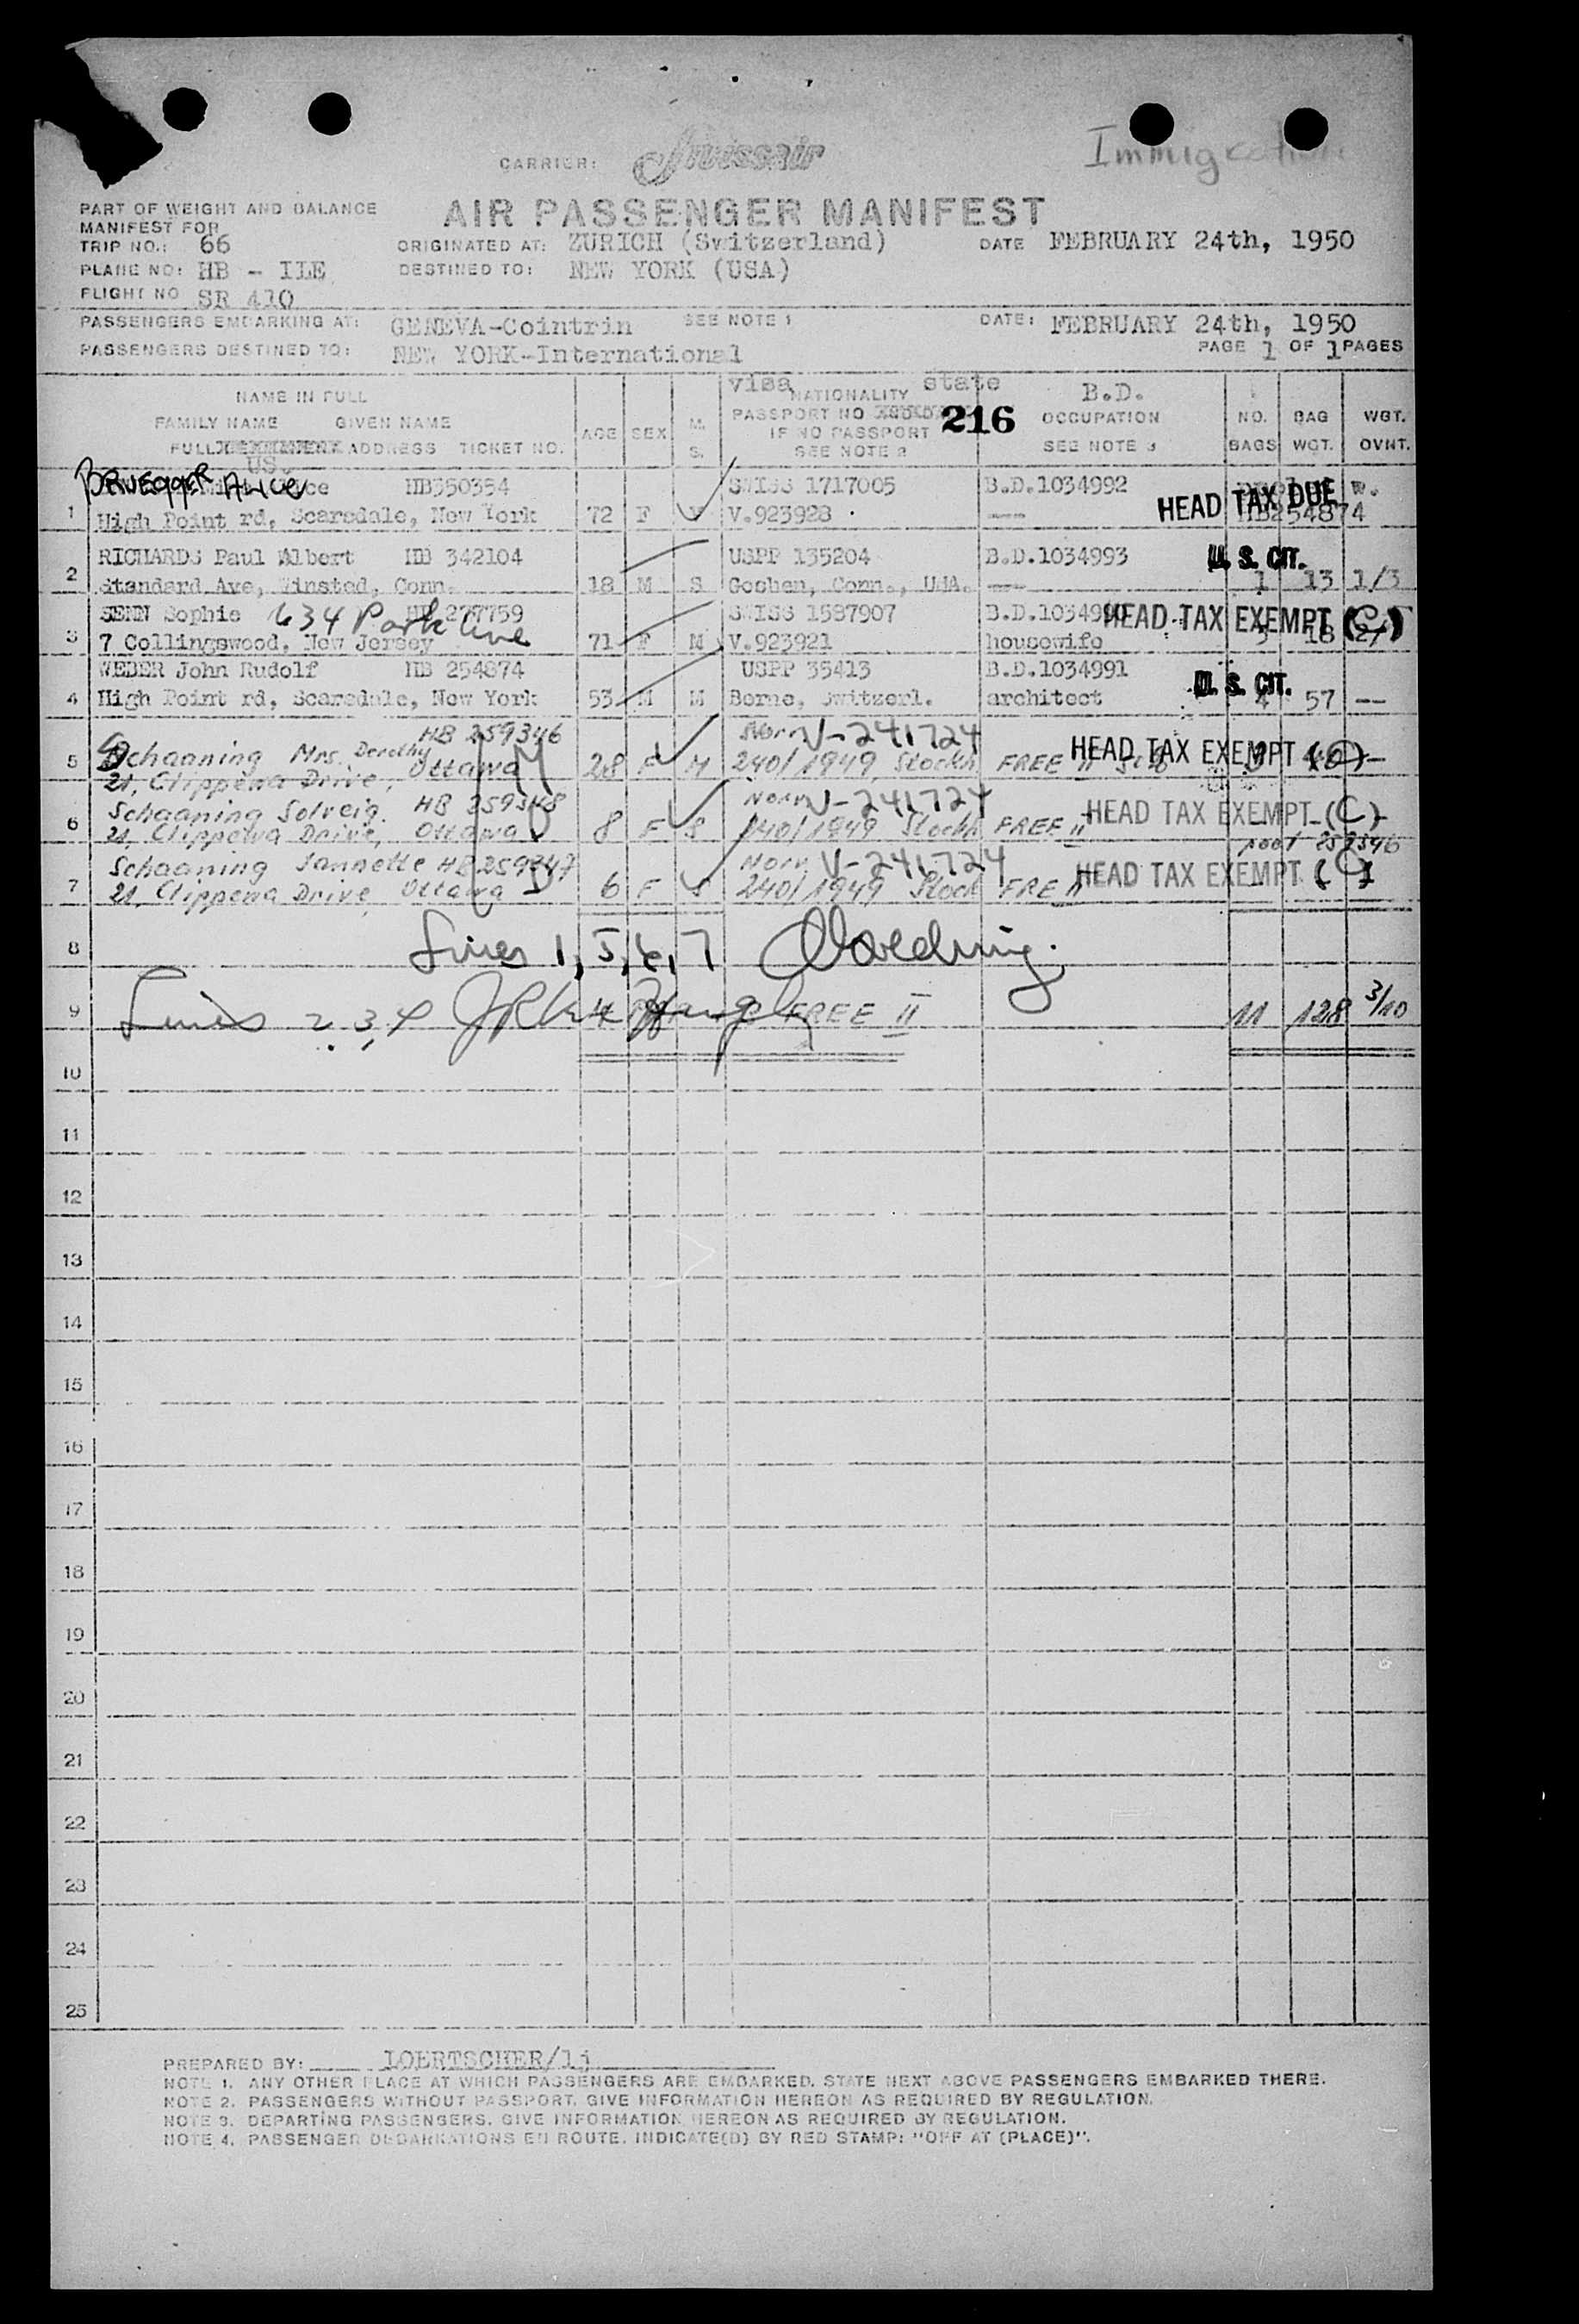 Immigration
CARRIER: Swissair
AIR PASSENGER MANIFEST
PART OF WEIGHT AND BALANCE
MANIFEST FOR
TRIP NO.: 66 ORIGINATED AT: ZURICH (Switzerland) DATE FEBRUARY 24th, 1950
PLANE NO: HB - ILE DESTINED TO: NEW YORK (USA)
FLIGHT NO SR 410
PASSENGERS EMBARKING AT: GENEVA-Cointrin SEE NOTE 1 DATE: FEBRUARY 24th, 1950
PASSENGERS DESTINED TO: NEW YORK-International PAGE 1 OF 1 PAGES
visa state
NAME IN FULL NATIONALITY B.D.
FAMILY NAME GIVEN NAME AGE SEX M. S. PASSPORT NO 216 OCCUPATION NO. BAG WGT.
IF NO PASSPORT
FULL ADDRESS TICKET NO. SEE NOTE 2 SEE NOTE 3 BAGS WGT. OVNT.
US.
BRUEGGER ALICE HB350354 SWISS 1717005 B.D.1034992 HEAD TAX DUE w.
1 High Point rd, Scarsdale, New York 72 F V.923928 --- HB254874
RICHARDS Paul Albert HB 342104 USPP 135204 B.D.1034993 U. S. CIT.
2 Standard Ave, Winsted, Conn. 18 M S Goshen, Conn., USA. --- 1 13 1/3
SENN Sophie 634 Park Ave HB 277759 SWISS 1587907 HEAD TAX EXEMPT (C)
3 7 Collingswood, New Jersey 71 F M V.923921 housewife 3 18
WEBER John Rudolf HB 254874 USPP 35413 B.D.1034991 U. S. CIT.
4 High Point rd, Scarsdale, New York 53 M M Berne, Switzerl. architect 4 57 --
HB 259346 V-241724
5 Schaaning Mrs. Dorothy 28 F M 240/1949 Stockh. FREE II HEAD TAX EXEMPT (C)
21, Clippewa Drive, Ottawa
Schaaning Solveig. HB 259348 Norw V-241724 HEAD TAX EXEMPT (C)
6 21, Clippewa Drive, Ottawa 8 F S 240/1949 Stockh FREE II
Schaaning Jannette HB 259347 Norw V-241724 pool 259346
7 21, Clippewa Drive, Ottawa 6 F S 240/1949 Stock FREE II HEAD TAX EXEMPT (C)
8 Lines 1, 5, 6, 7
9 Lines 2 3, 4 FREE II 11 128 3/10
10
11
12
13
14
15
16
17
18
19
20
21
22
23
24
25
PREPARED BY: LOERTSCHER/lj
NOTE 1. ANY OTHER PLACE AT WHICH PASSENGERS ARE EMBARKED, STATE NEXT ABOVE PASSENGERS EMBARKED THERE.
NOTE 2. PASSENGERS WITHOUT PASSPORT, GIVE INFORMATION HEREON AS REQUIRED BY REGULATION.
NOTE 3. DEPARTING PASSENGERS, GIVE INFORMATION HEREON AS REQUIRED BY REGULATION.
NOTE 4. PASSENGER DEBARKATIONS EN ROUTE, INDICATE(D) BY RED STAMP: "OFF AT (PLACE)".